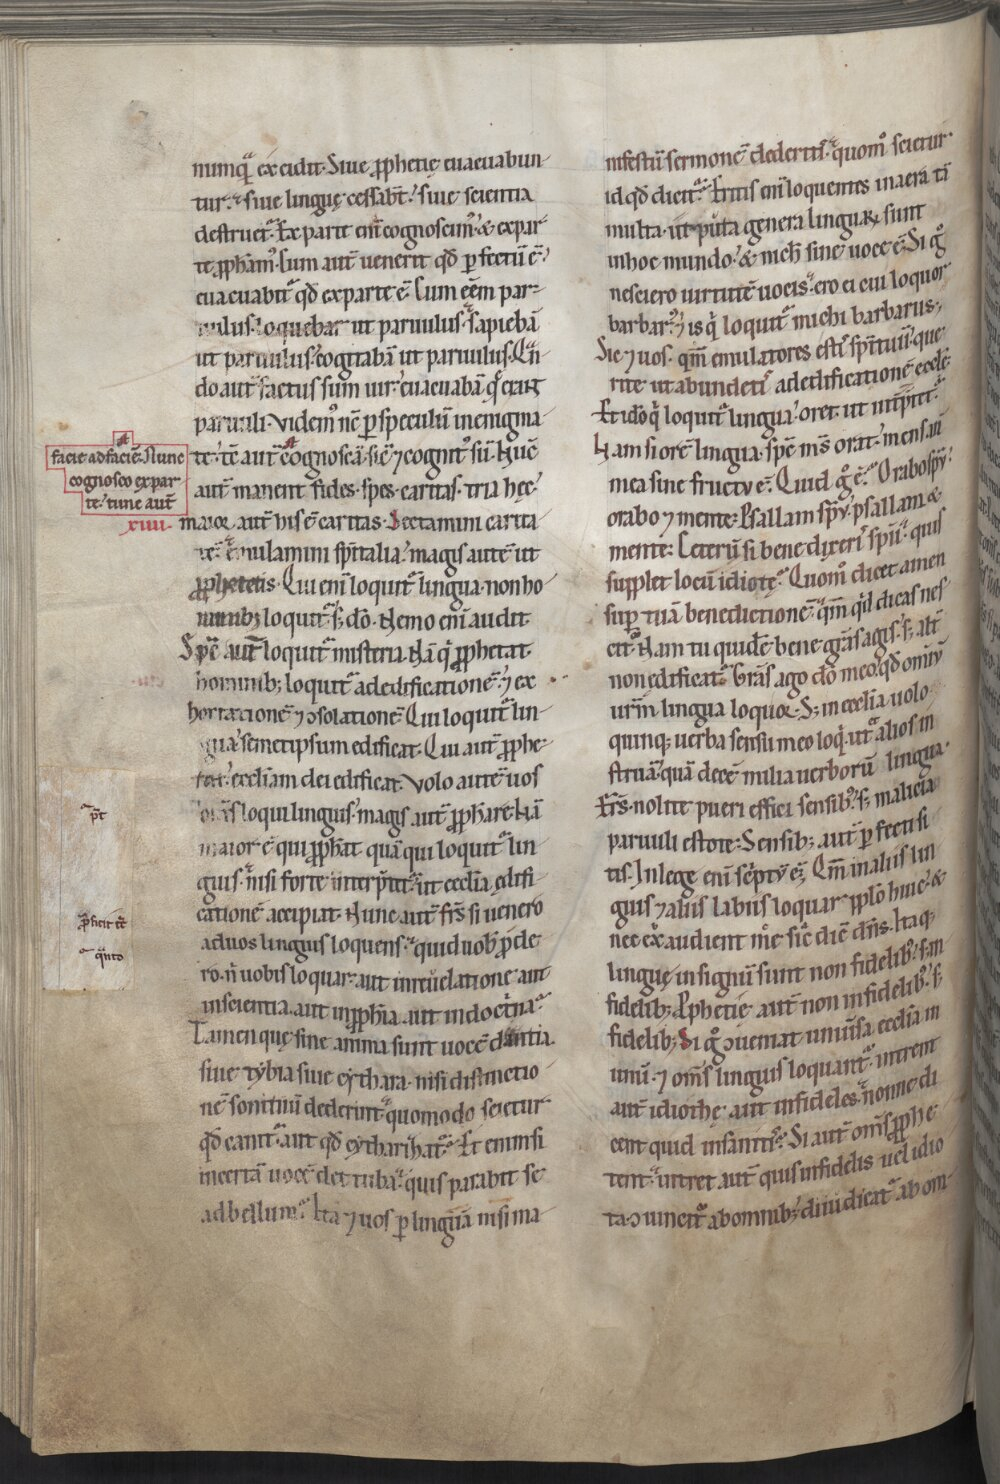 numq̄ excidit. Siue ꝓphetię euacuabun
tur. siue linguę cessab̄t. siue scientia
destruet᷑. Ex parte eni͂ cognoscim᷒. & expar
te ꝓpham᷒. Cum aut͂ uenerit qd̄ ꝑfectū ē.
euacuabit᷑ qd̄ exparte ē. Cum eēm par
uulus. loquebar ut paruulus. sapiebā
ut paruulus. cogitabā ut paruulus. Qn̄
do aut͂ factus sum uir. euacuabā q̄ erant
paruuli. Videm᷒ nc̄ ꝑ speculū inenigma
te. tc̄ aut͂
facie adfaciē. Nunc
cognosco expar
te. tunc aut͂
cognoscā. sic̄ ⁊ cognit᷒ sū. Nuc̄
aut͂ manent fides. spes. caritas. tria hec.
xiiii.
maior aut͂ his ē caritas. Sectamini carita
tē. emulamini spīt͂alia. magis autē ut
ꝓphetetis. Qui eni͂ loquit᷑ lingua. non ho
minibꝫ loquit᷑. sꝫ dō. Nemo eni͂ audit.
Spū aut͂ loquit᷑ misteria. Nā q̄ ꝓphetat
hominibꝫ loquit᷑ adedificationē. ⁊ ex
hortationē ⁊ ↄsolationē. Qui loquit᷑ lin
gua. semetipsum edificat. Qui aut͂ ꝓphe
tat. eccl͂iam dei edificat. Volo autē uos
om͂s loqui linguis. magis aut͂ ꝓphare. Nā
maior ē qui ꝓphat quā qui loquit᷑ lin
guis. nisi forte interp̄tit᷑. ut eccl͂ia edifi
cationē accipiat. Nunc aut͂ fr͂s si uenero
aduos linguis loquens. quid uob̄ ꝓde
ro. n̄ uobis loquar. aut inreuelatione aut
inscientia. aut inꝓphia. aut indoctrina.
Tamen quę sine anima sunt uocē dantia.
siue tybia siue cythara. nisi distinctio
nē sonituū dederint. quomodo scietur
qd̄ canit᷑. aut qd̄ cytharizat᷑. Et enim si
incertā uocē det tuba. quis parabit se
adbellum. Ita ⁊ uos ꝑ linguā nisi ma
nifestū sermonē dederitis. quom̊ scietur
id qd̄ dicit᷑. Eritis eni͂ loquentes inaera. tā
multa. ut puta genera linguaꝝ sunt
inhoc mundo. & nich̄ sine uoce ē. Si g̊
nesciero uirtutē uocis. ero ei cui loquor
barbar᷒. ⁊ is q̄ loquit᷑ michi barbarus.
Sic ⁊ uos. qm͂ emulatores estis spīr͂uū. que
rite ut abundetis adedificationē eccl͂ę.
Et ido̊ q̄ loquit᷑ lingua. oret ut int͂p̄tit᷑.
Nam si orē lingua. spc̄ ms̄ orat. mens aū
mea sine fructu ē. Quid g̊ ē. Orabo spū.
orabo ⁊ mente. Psallam spū. psallam &
mente. Ceterū si bene dixeris spū. quis
supplet locū idiotę. Quom̊ dicet amen
sup tuā benedictionē. qm͂ qid dicas nes
cit. Nam tu quidē bene grās agis. sꝫ alt͂
non edificat᷑. Grās ago dō meo. qd̄ omniū
urm͂ lingua loquor. Sꝫ in eccl͂ia uolo
quinqꝫ uerba sensu meo loqi. ut ⁊ alios in
struā. quā decē milia uerborū lingua.
Fr͂s. nolite pueri effici sensibꝫ. sꝫ malicia
paruuli estote. Sensibꝫ aut͂ ꝑfecti si
tis. Inlege eni͂ sc̄ptū ē. Qm͂ inaliis lin
guis ⁊ aliis labiis loquar pplo huic. &
nec exaudient me sic̄ dic̄ dn͂s. Itaqꝫ
linguę insignū sunt non fidelibꝫ. s; in
fidelibꝫ. Ꝓphetie aut͂ non infidelibꝫ. sꝫ
fidelibꝫ. Si g̊ ↄueniat uniu͂sa eccl͂ia in
unū. ⁊ om͂s linguis loquant᷑. intrent
aut͂ idiothę aut infideles. nonne di
cent quid insanitis. Si aut͂ om͂s ꝓphe
tent. intret aut͂ quis infidelis uel idio
ta. ↄuincit᷑ abomnibꝫ. diiudicat᷑ ab om